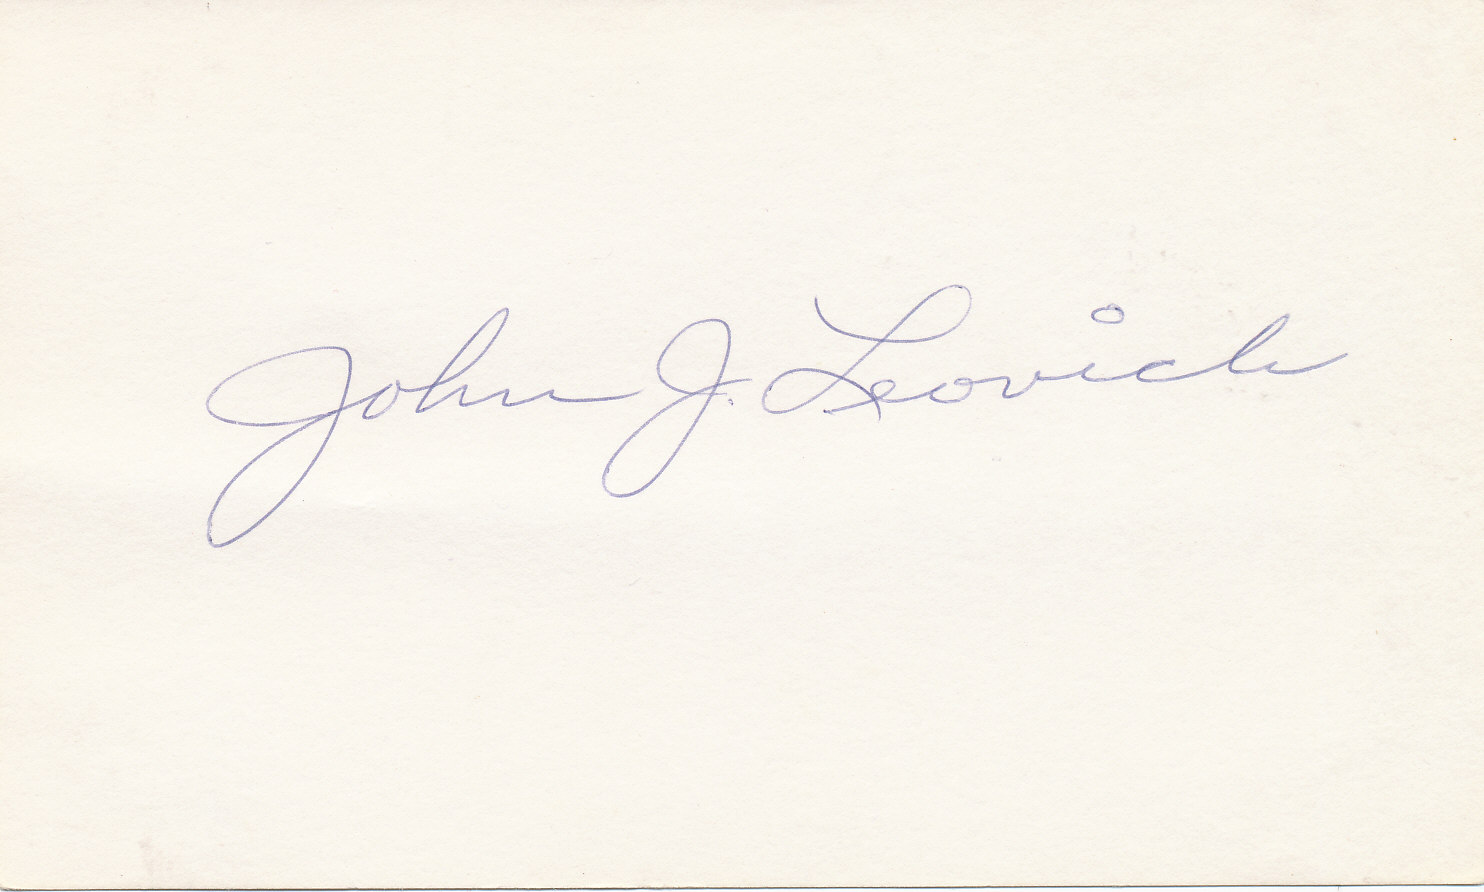 John J. Leovich